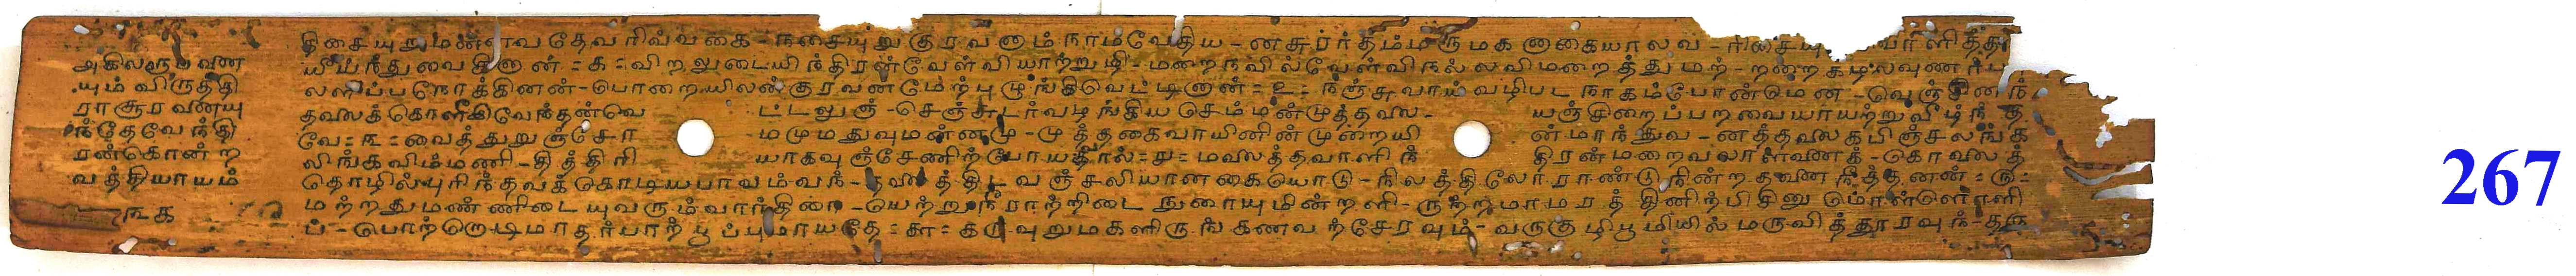 அகிலரூபவண
யும் விருத்தி
ராசூரவணயு
ந்தேவேந்தி
ரன்கொன்ற
வத்தியாயம்
௩௧
திசையுறுமண்ணவ தேவரிவ்வகை - நசையுறு குரவனாம் நாமவேதிய - னசுரர்தம்மருமக னாகையாலவ - ளித்து
யிய்ந்துவைகினான் = ௧ = விறலுடையிந்திரன்வேள்வியாற்றுழி - மறைநவில்வேள்விநல்லவிமறைத்துமற் - றறைகழலவுணர்
லளிப்பநோக்கினன் - பொறையிலன்குரவன்மேற்புழுங்கிவெட்டினான் = ௨ = நஞ்சுவாய்வழிபட நாகம்போன்மென - வெஞ்சின
தவலக்கொளீஇவேந்தன்வெ ட்டலுஞ் - செஞ்சுடர்வழங்கியசெம்மன்முத்தலை - யஞ்சிறைப்பறவையாயற்றுவீழ்ந்த
வே = ௩ = வைத்துறுஞ்சோ மமுமதுவுமன்னமு - முத்தகைவாயினின்முன்றயி ன்மாந்துவ - னத்தலைகபிஞ்சலங்க
லிங்கவிம்மணி - தித்திரி யாகவுஞ்சேணிற்போயதால் = ௪ = மலைத்தவாளிந் திரன்மறைவலாளனைக் - கொலைத்
தொழில்புரிந்தவக்கொடியபாவம்வந் - தலைத்திடவஞ்சலியானகையொடு - நிலத்திலோராண்டுநின்றதனைநீத்தனன் = ௫ =
மற்றதுமண்ணிடையுவரும்வார்திரை - யெற்றுநீராற்றிடை நுரையுமின்றளி - ருற்றமாமரத்தினிற்பிதினு மொள்ளெளி
ப் - பொற்றொடிமாதர்பாற்பூப்புமாயதே = ௬ = கருவுறுமகளிருங்கணவற்சேரவும் - வருகுழிபூமியில் மருவித்தூரவுந் - தரு
267